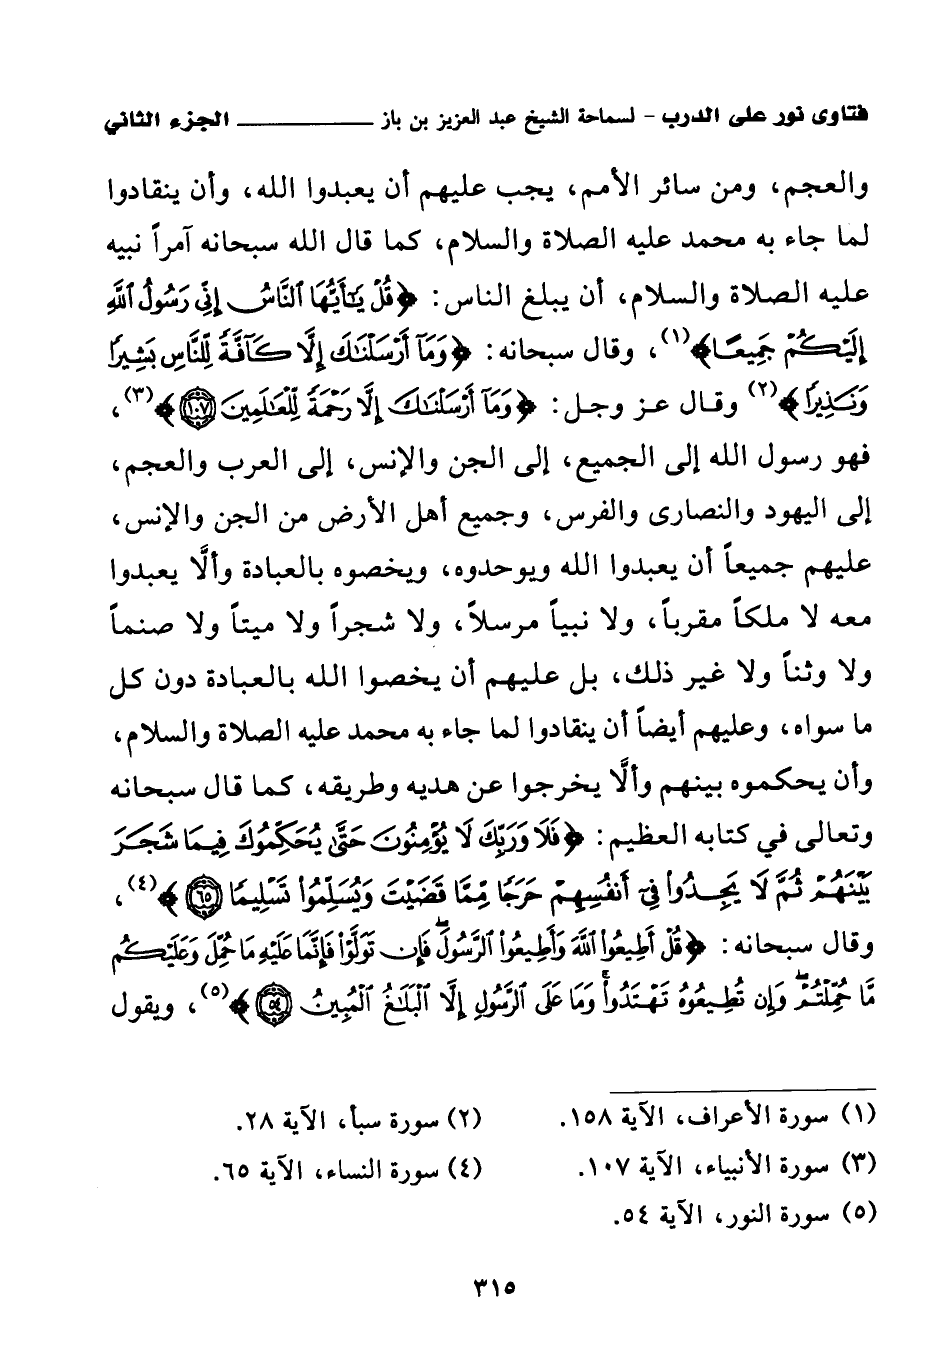 فتاوى نور على الدرب - لسماحة الشيخ عبد العزيز بن باز ـــــــــــــ الجزء الثاني
والعجم، ومن سائر الأمم، يجب عليهم أن يعبدوا الله، وأن ينقادوا
لما جاء به محمد عليه الصلاة والسلام، كما قال الله سبحانه آمراً نبيه
عليه الصلاة والسلام، أن يبلغ الناس: ﴿قُلْ يَٰٓأَيُّهَا ٱلنَّاسُ إِنِّي رَسُولُ ٱللَّهِ
إِلَيْكُمْ جَمِيعًا﴾(١)، وقال سبحانه: ﴿وَمَآ أَرْسَلْنَٰكَ إِلَّا كَآفَّةً لِّلنَّاسِ بَشِيرًا
وَنَذِيرًا﴾(٢) وقال عز وجل: ﴿وَمَآ أَرْسَلْنَٰكَ إِلَّا رَحْمَةً لِّلْعَٰلَمِينَ ١٠٧﴾(٣)،
فهو رسول الله إلى الجميع، إلى الجن والإنس، إلى العرب والعجم،
إلى اليهود والنصارى والفرس، وجميع أهل الأرض من الجن والإنس،
عليهم جميعاً أن يعبدوا الله ويوحدوه، ويخصوه بالعبادة وألَّا يعبدوا
معه لا ملكاً مقرباً، ولا نبياً مرسلاً، ولا شجراً ولا ميتاً ولا صنماً
ولا وثناً ولا غير ذلك، بل عليهم أن يخصوا الله بالعبادة دون كل
ما سواه، وعليهم أيضاً أن ينقادوا لما جاء به محمد عليه الصلاة والسلام،
وأن يحكموه بينهم وألَّا يخرجوا عن هديه وطريقه، كما قال سبحانه
وتعالى في كتابه العظيم: ﴿فَلَا وَرَبِّكَ لَا يُؤْمِنُونَ حَتَّىٰ يُحَكِّمُوكَ فِيمَا شَجَرَ
بَيْنَهُمْ ثُمَّ لَا يَجِدُوا۟ فِىٓ أَنفُسِهِمْ حَرَجًا مِّمَّا قَضَيْتَ وَيُسَلِّمُوا۟ تَسْلِيمًا ٦٥﴾(٤)،
وقال سبحانه: ﴿قُلْ أَطِيعُوا۟ ٱللَّهَ وَأَطِيعُوا۟ ٱلرَّسُولَ ۖ فَإِن تَوَلَّوْا۟ فَإِنَّمَا عَلَيْهِ مَا حُمِّلَ وَعَلَيْكُم
مَّا حُمِّلْتُمْ ۖ وَإِن تُطِيعُوهُ تَهْتَدُوا۟ ۚ وَمَا عَلَى ٱلرَّسُولِ إِلَّا ٱلْبَلَٰغُ ٱلْمُبِينُ ٥٤﴾(٥)، ويقول
(١) سورة الأعراف، الآية ١٥٨. (٢) سورة سبأ، الآية ٢٨.
(٣) سورة الأنبياء، الآية ١٠٧. (٤) سورة النساء، الآية ٦٥.
(٥) سورة النور، الآية ٥٤.
٣١٥